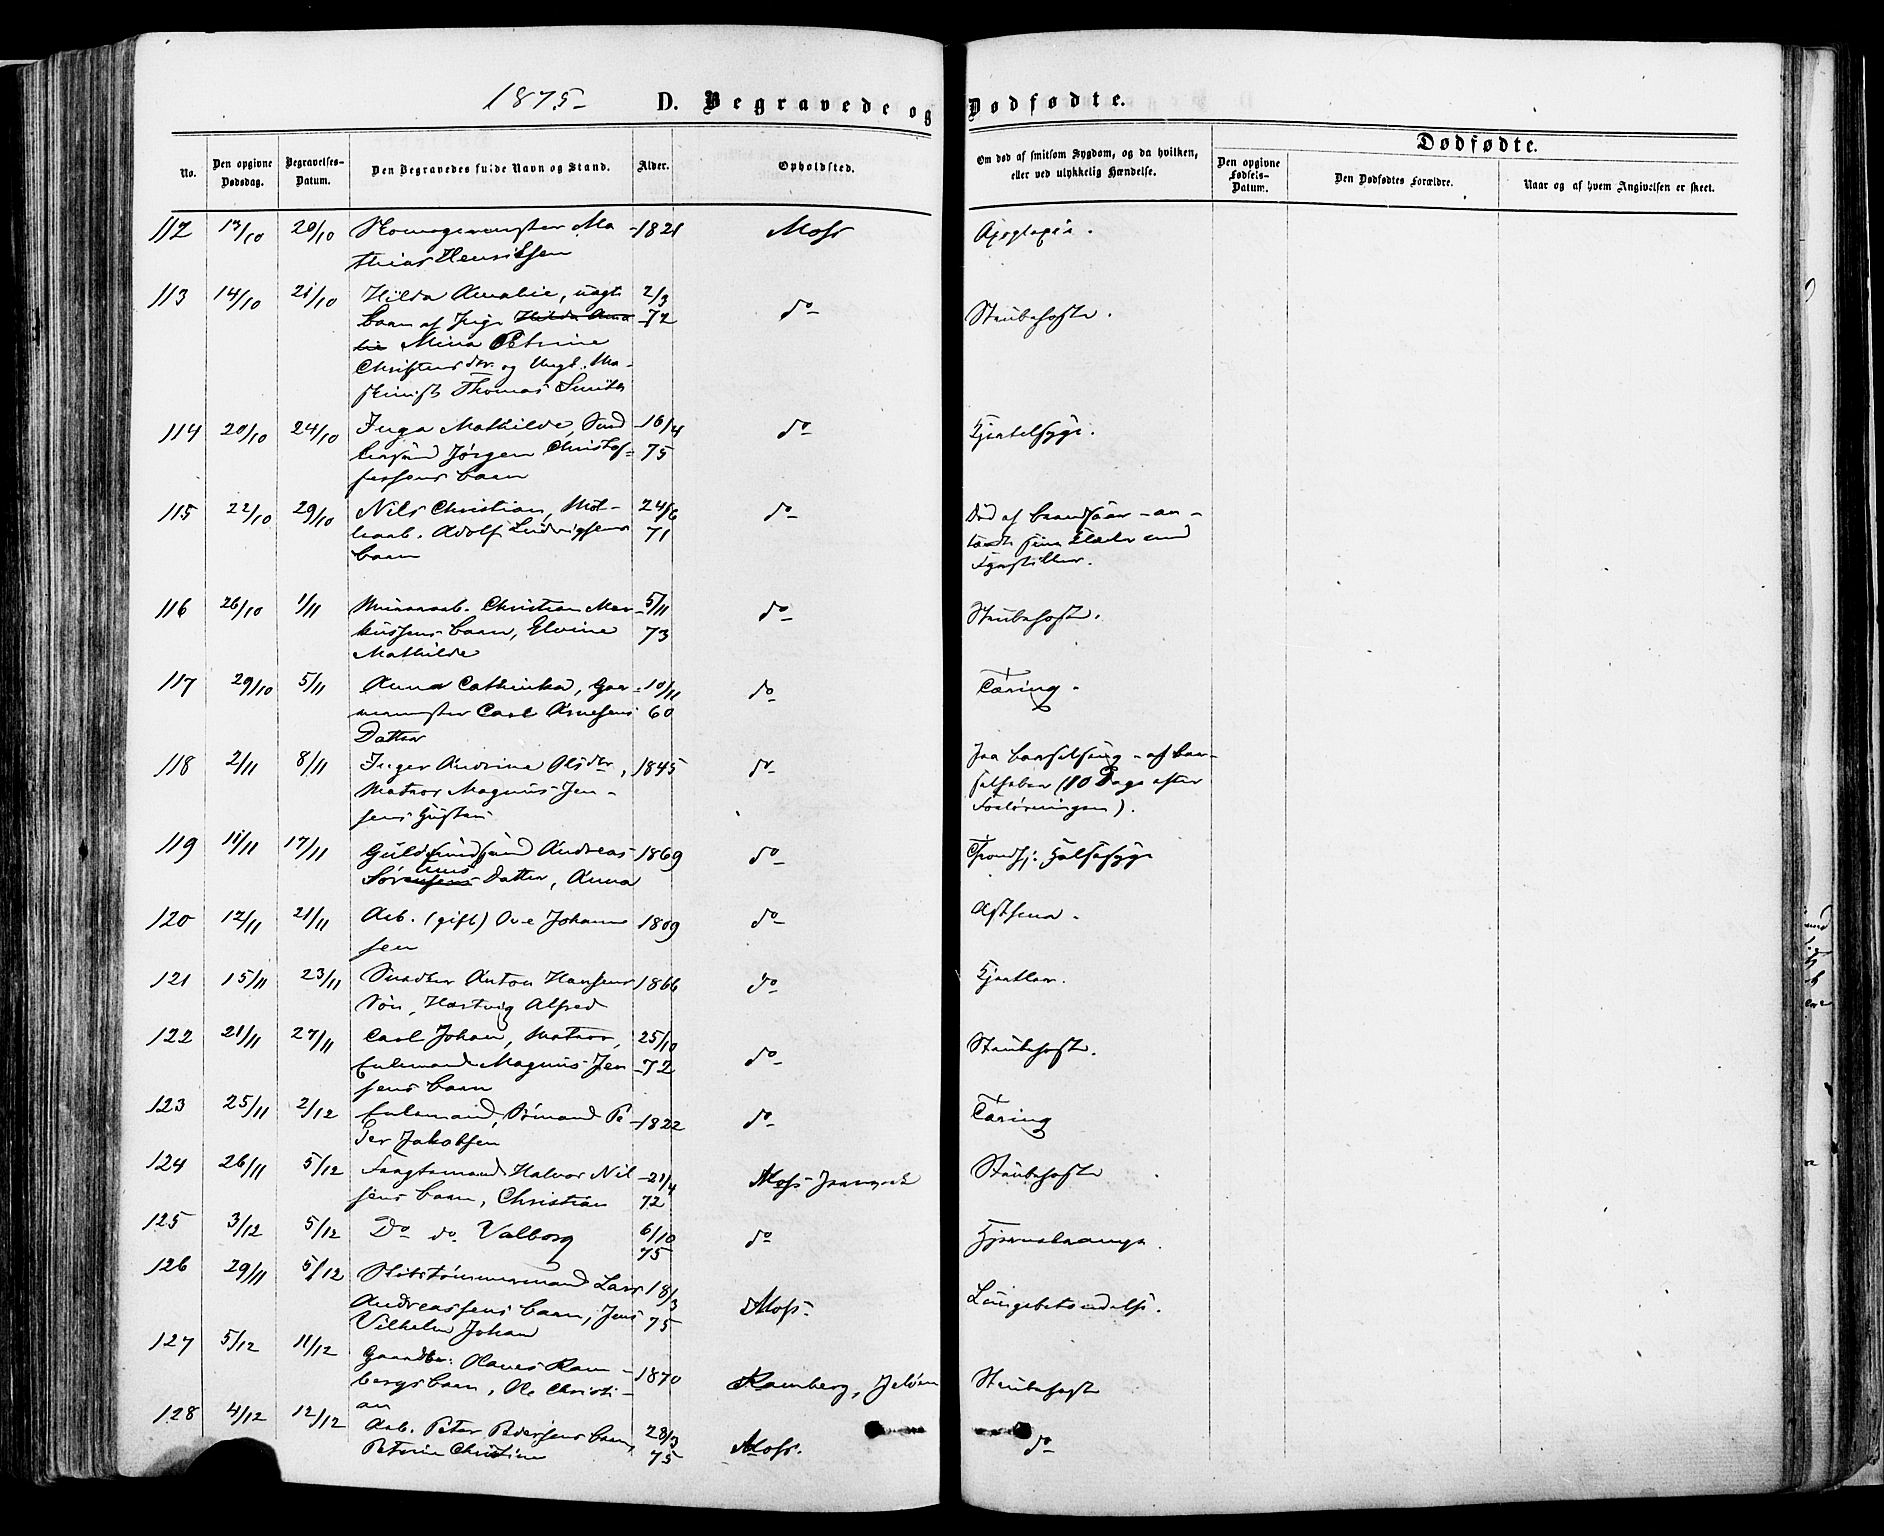 1875-
D. Begravede og Dødfødte.
Dødfødte.
No.
Den opgivne Dødsdag.
Begravelses-Datum.
Den Begravedes fulde Navn og Stand.
Alder.
Opholdsted.
Om død af smitsom Sygdom, og da hvilken, eller ved ulykkelig Hændelse.
Den opgivne Fødsels-Datum.
Den Dødfødtes Forældre.
Naar og af hvem Angivelsen er skeet.
112 17/10 20/10 Skomagermester Ma- 1821 Moss
thias Henriksen
113 14/10 21/10 Hilda Amalie, uægte 2/3 do Stubehoste.
barn af Pige Hilda Ama 72
lie Mina Petrine
Christensdtr. og Ungk. Ma-
skinist Thomas Smith
114 20/10 24/10 Inga Mathilde, 16/4 do Kjertelsyge.
Jørgen Christof- 75
fersens barn
115 22/10 29/10 Nils Christian, 24/6 do Død af brandsaar - an-
Adolf Ludvigsens 71 tændte sine Klæder med
barn Fyrstikker.
116 26/10 1/11 Christian Mar- 5/11 do Stubehoste.
kussens barn, Elvine 73
Mathilde
117 29/10 5/11 Anna Cathinka, Gar- 10/11 do Tæring.
vermester Carl Arnesens 60
Datter
118 2/11 8/11 Inger Andrine Olsdtr, 1845 do Paa barselseng - af bar-
Matros Magnus Jen- selfeber (10 Dage efter
sens Hustru Forløsningen).
119 11/11 17/11 Guldsmedsvend Andreas 1869 do Trondhj: Halssyge
Sørensens Datter, Anna
120 12/11 21/11 Arb. (gift) Ove Johann 1809 do Asthma.
sen
121 15/11 23/11 Snedker Anton Hansens 1866 do Kjertler.
Søn, Hartvig Alfred
122 21/11 27/11 Carl Johan, Matros, 25/10 do Stubehoste.
Enkemand Magnus Jen 72
sens barn
123 25/11 2/12 Enkemand, Sømand Pe 1822 do Tæring
der Jakobsen
124 26/11 5/12 Halvor Nil 21/4 Moss Jernværk Stubehoste
sens barn, Christian 72
125 3/12 5/12 Do do Valborg 6/10 do Hjernekrampe.
75
126 29/11 5/12 Skibstømmermand Lars 18/3 Moss. Lungebetændelse.
Andreassens barn, Jens 75
Vilhelm Johan
127 5/12 11/12 Gaardbr: Ram- 1870 Ramberg, Jeløen Stubehoste
bergs barn, Ole Christi-
an
128 4/12 12/12 Arb. Peter Pedersens barn, 28/3 Moss. do
Petrine Christine 75